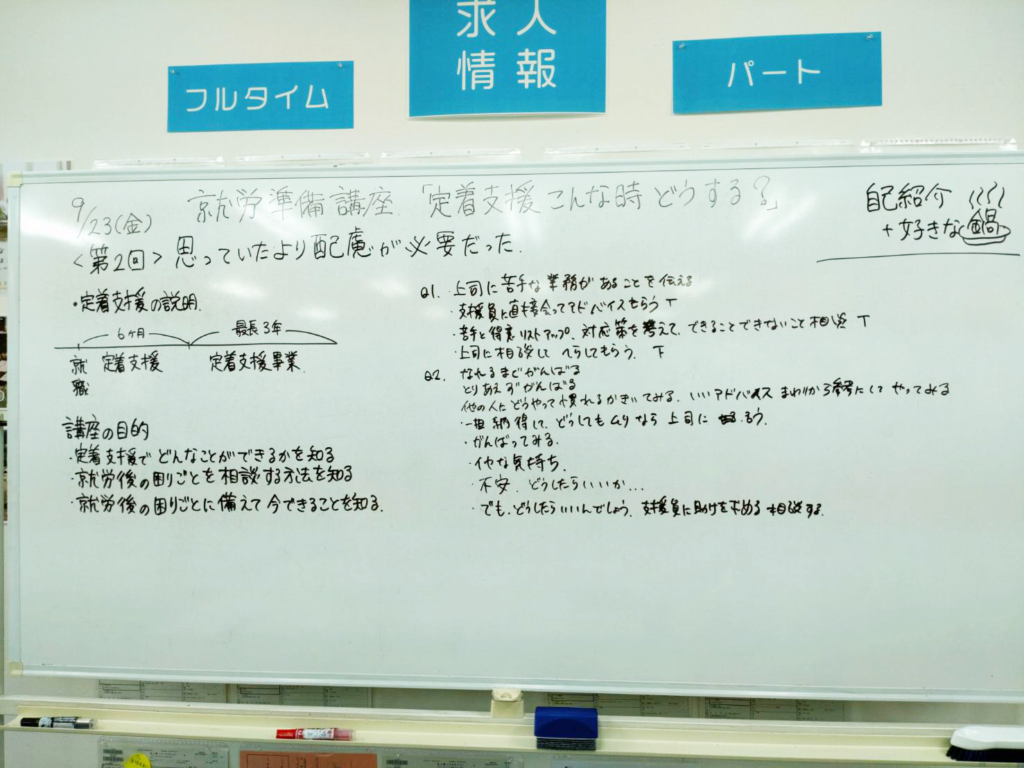 求人
情報
フルタイム
パート
9/23(金)
就労準備講座「定着支援こんな時どうする?」
<第2回>思っていたより配慮が必要だった.
自己紹介
+好きな鍋
・定着支援の説明.
6ヶ月
最長3年
就職
定着支援
定着支援事業
講座の目的
・定着支援でどんなことができるかを知る
・就労後の困りごとを相談する方法を知る
・就労後の困りごとに備えて今できることを知る.
Q1. 上司に苦手な業務があることを伝える
・支援員に直接会ってアドバイスもらう T
・苦手と得意リストアップ. 対応策を考えて, できることできないこと相談 T
・上司に相談して へらしてもらう. T
Q2. なれるまでがんばる
とりあえずがんばる
他の人にどうやって慣れるかきいてみる. いいアドバイス まわりから参考にして やってみる
・一担 納得して, どうしてもムリなら 上司に
・がんばってみる.
・イヤな気持ち.
・不安. どうしたらいいか...
・でも、どうしたらいいんでしょう. 支援員に助けを求める 相談する.